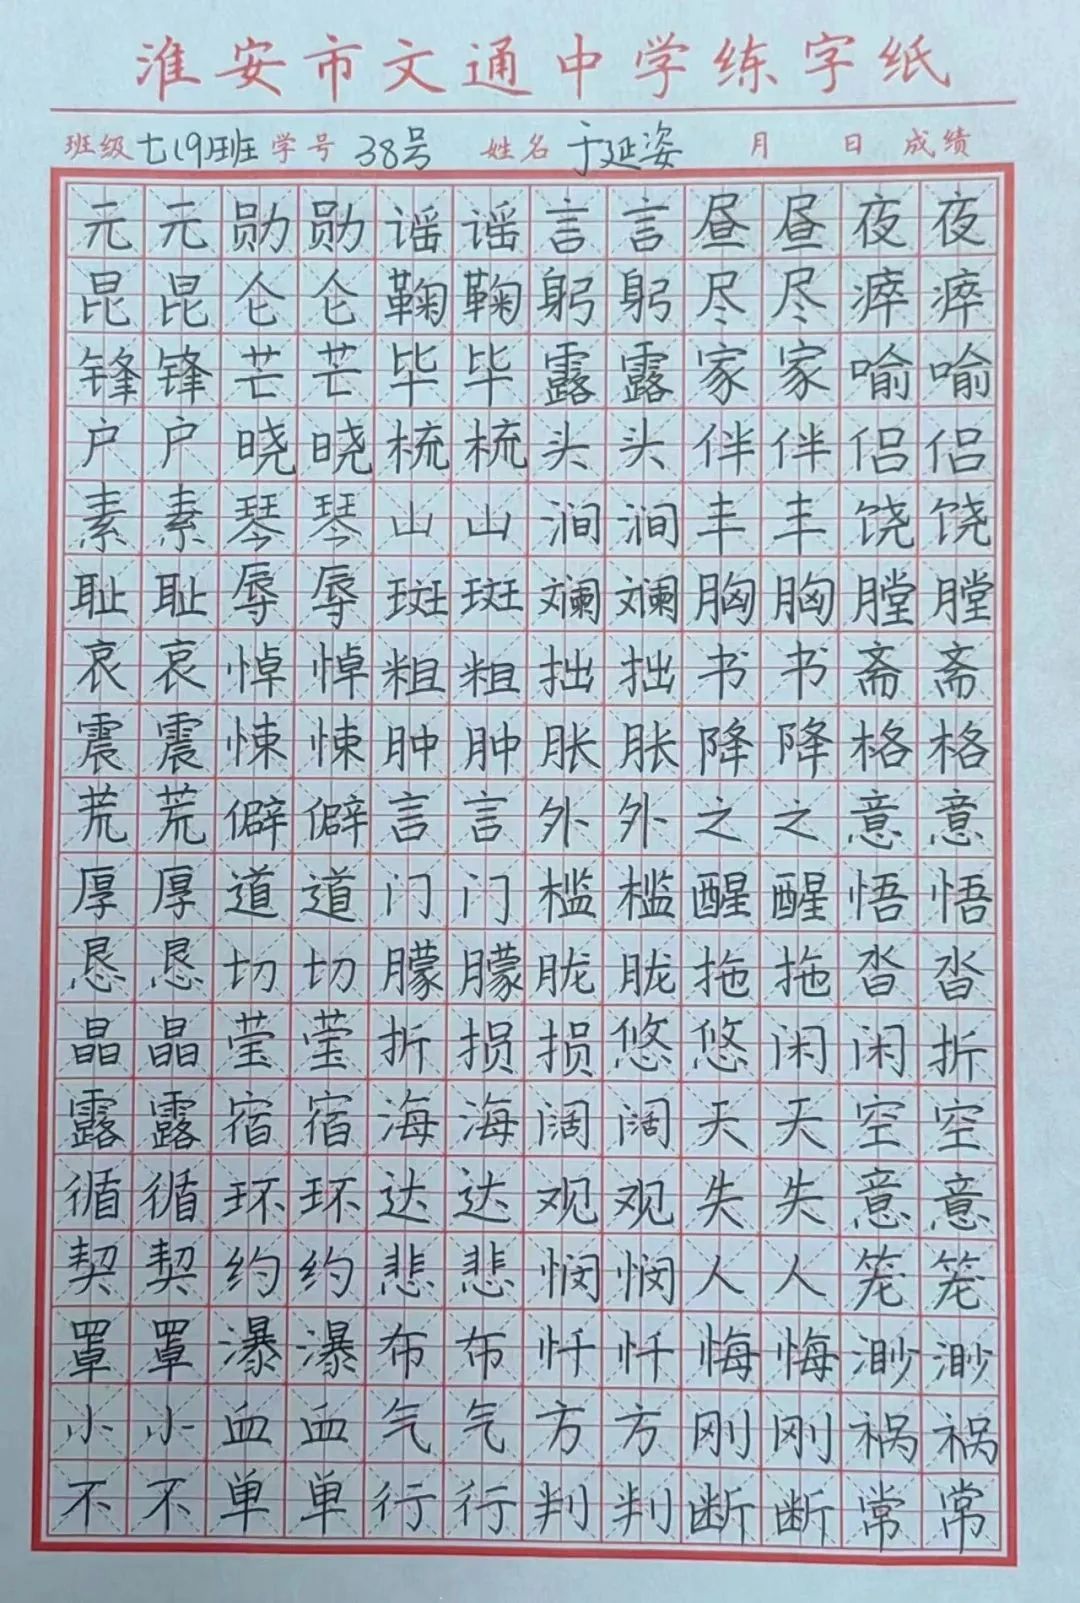 淮安市文通中学练字纸
班级 七(9)班 学号 38号 姓名 于延姿 月 日 成绩
元元勋勋谣谣言言昼昼夜夜
昆昆仑仑鞠鞠躬躬尽尽瘁瘁
锋锋芒芒毕毕露露家家喻喻
户户晓晓梳梳头头伴伴侣侣
素素琴琴山山涧涧丰丰饶饶
耻耻辱辱斑斑斓斓胸胸膛膛
哀哀悼悼粗粗拙拙书书斋斋
震震悚悚肿肿胀胀降降格格
荒荒僻僻言言外外之之意意
厚厚道道门门槛槛醒醒悟悟
恳恳切切朦朦胧胧拖拖沓沓
晶晶莹莹折损损悠悠闲闲折
露露宿宿海海阔阔天天空空
循循环环达达观观失失意意
契契约约悲悲悯悯人人笼笼
罩罩瀑瀑布布忏忏悔悔渺渺
小小血血气气方方刚刚祸祸
不不单单行行判判断断常常